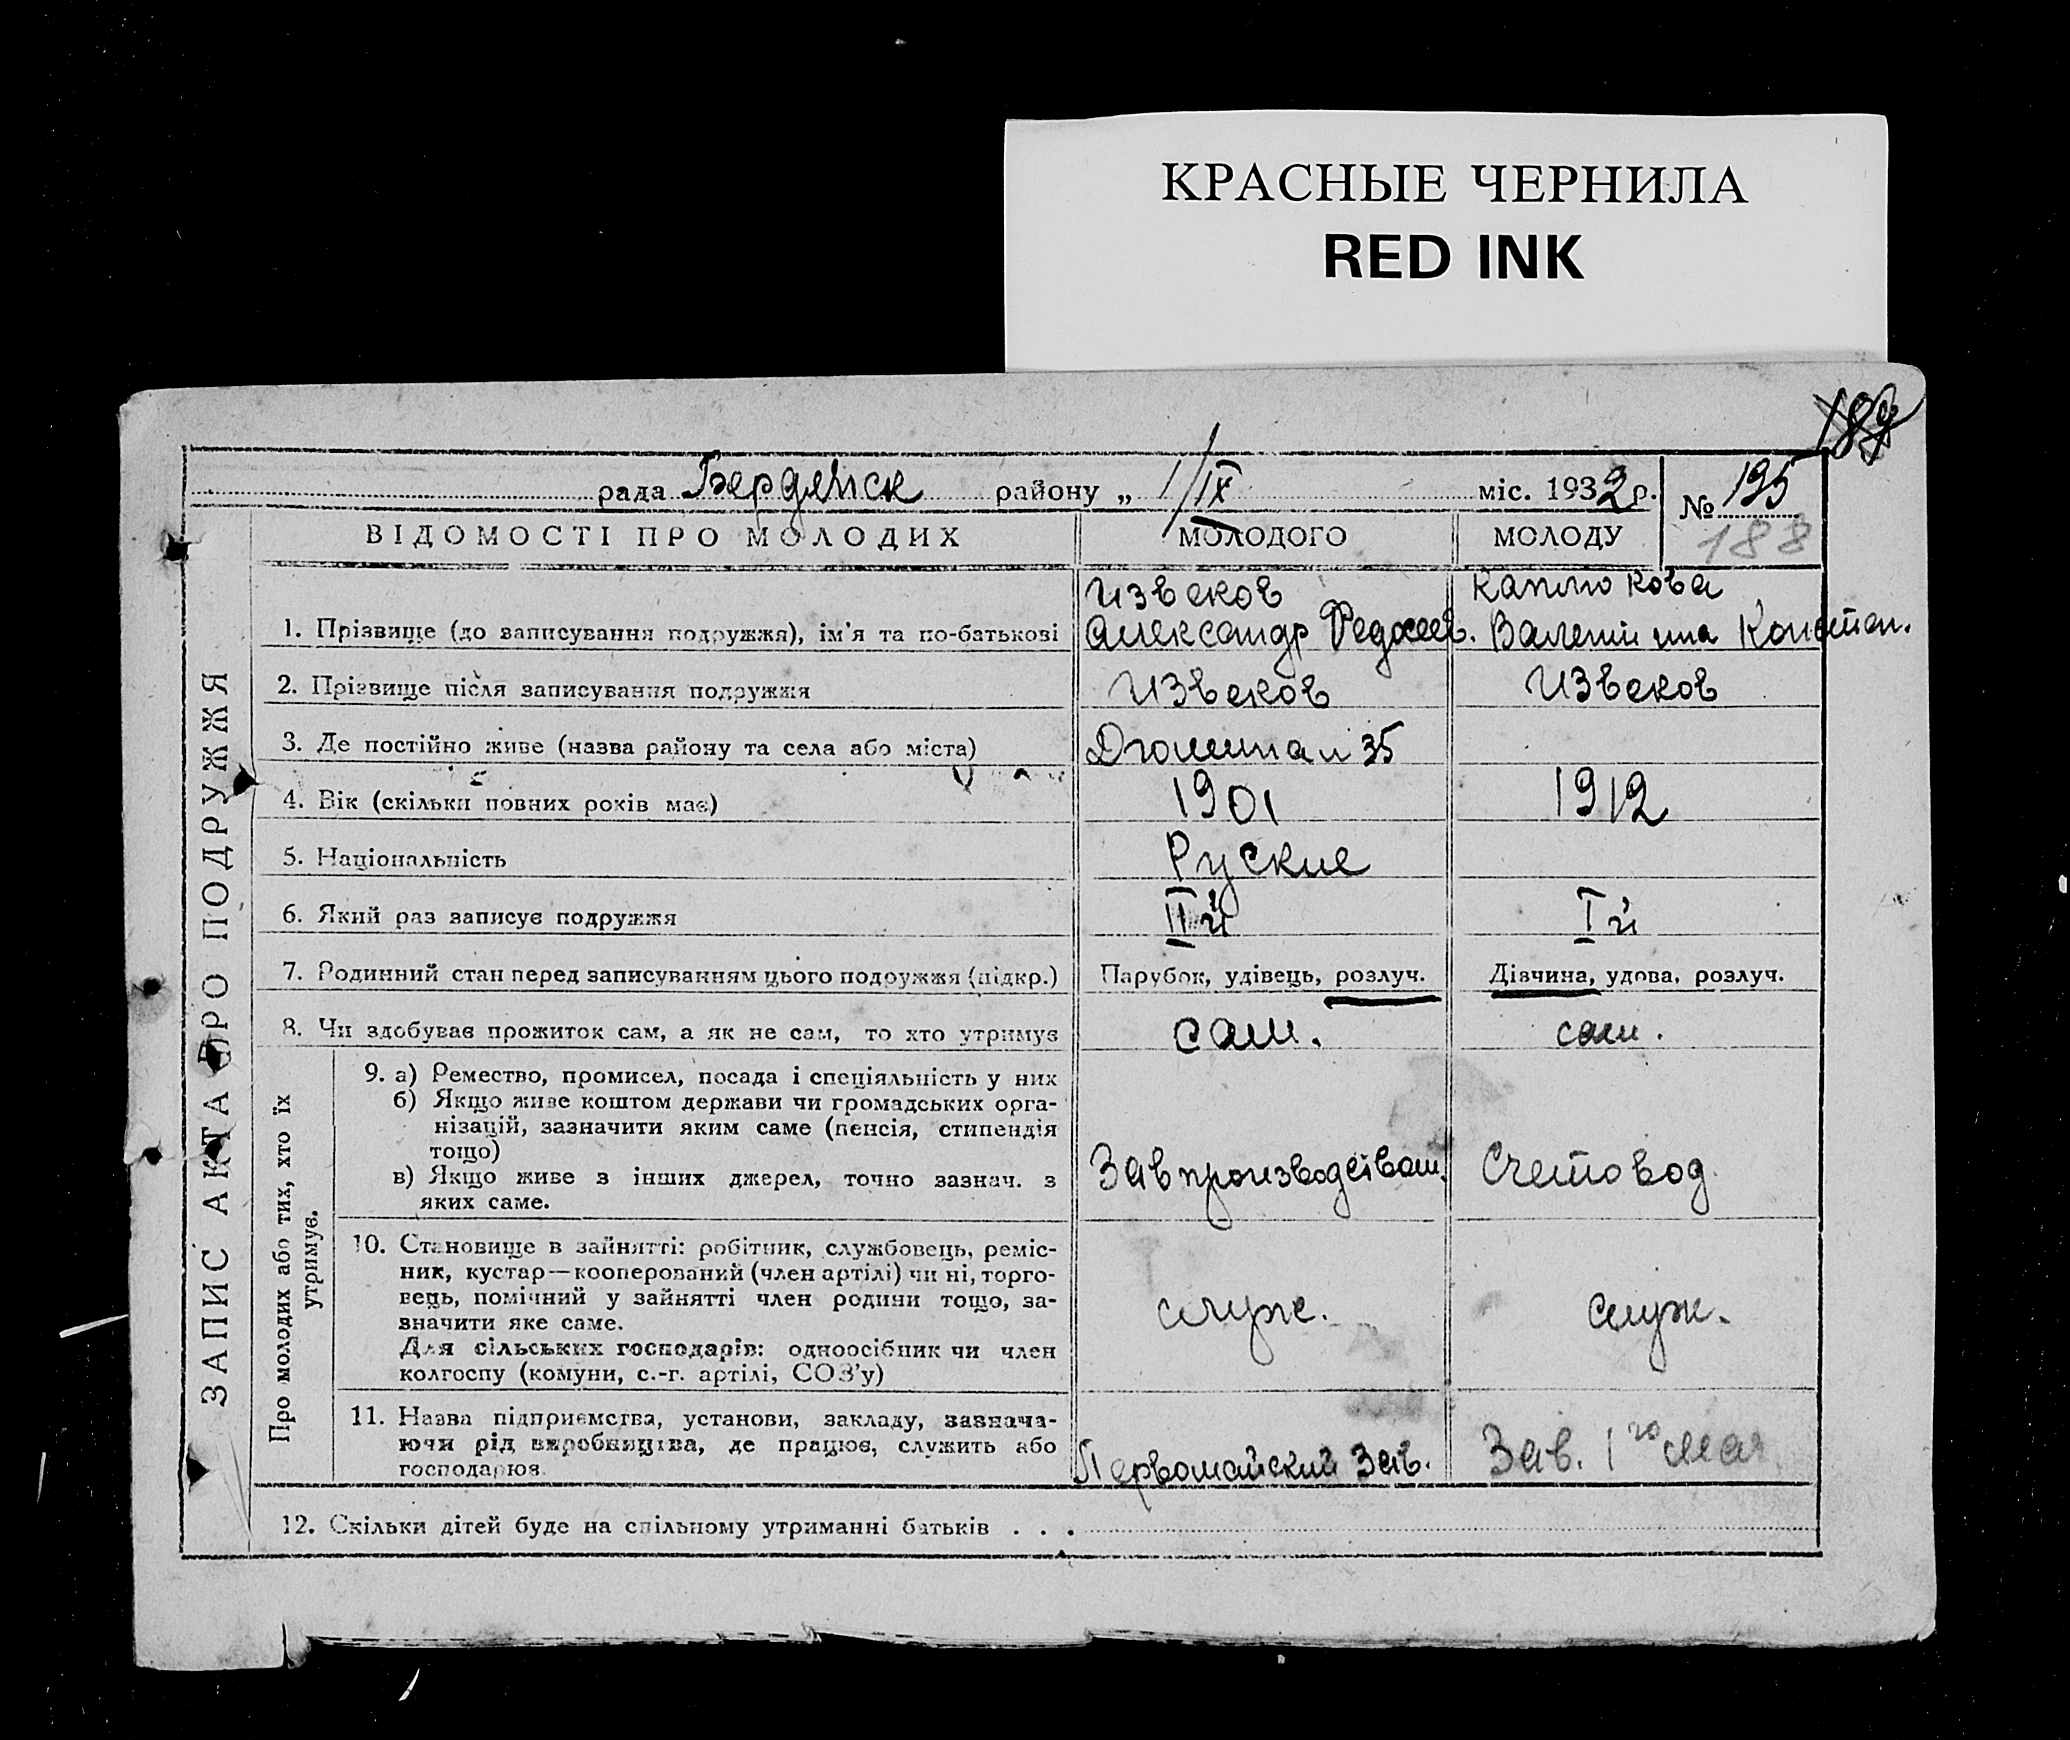 КРАСНЫЕ ЧЕРНИЛА
RED INK
рада Бердянск району „ 1/IX міс. 1932 р. № 195
188
ВІДОМОСТІ ПРО МОЛОДИХ МОЛОДОГО МОЛОДУ
ЗАПИС АКТА ПРО ПОДРУЖЖЯ
1. Прізвище (до записування подружжя), ім'я та по-батькові Извеков Александр Федосеев. Валентина Констан.
2. Прізвище після записування подружжя Извеков Извеков
3. Де постійно живе (назва району та села або міста) 35
4. Вік (скільки повних років має) 1901 1912
5. Національність Руские
6. Який раз записує подружжя IIй Iй
7. Родинний стан перед записуванням цього подружжя (підкр.) Парубок, удівець, розлуч. Дівчина, удова, розлуч.
8. Чи здобуває прожиток сам, а як не сам, то хто утримує сам. сам.
Про молодих або тих, хто їх
утримує.
9. а) Ремество, промисел, посада і спеціяльність у них
б) Якщо живе коштом держави чи громадських орга-
нізацій, зазначити яким саме (пенсія, стипендія
тощо)
в) Якщо живе з інших джерел, точно зазнач. з
яких саме.
Зав производством. Счетовод
10. Становище в зайнятті: робітник, службовець, реміс-
ник, кустар—кооперований (член артілі) чи ні, торго-
вець, помічний у зайнятті член родини тощо, за-
значити яке саме.
Для сільських господарів: одноосібник чи член
колгоспу (комуни, с.-г. артілі, СОЗ'у)
служ. служ.
11. Назва підприємства, установи, закладу, зазнача-
ючи рід виробництва, де працює, служить або
господарює
Первомайский Зав. Зав. 1го мая
12. Скільки дітей буде на спільному утриманні батьків . . .